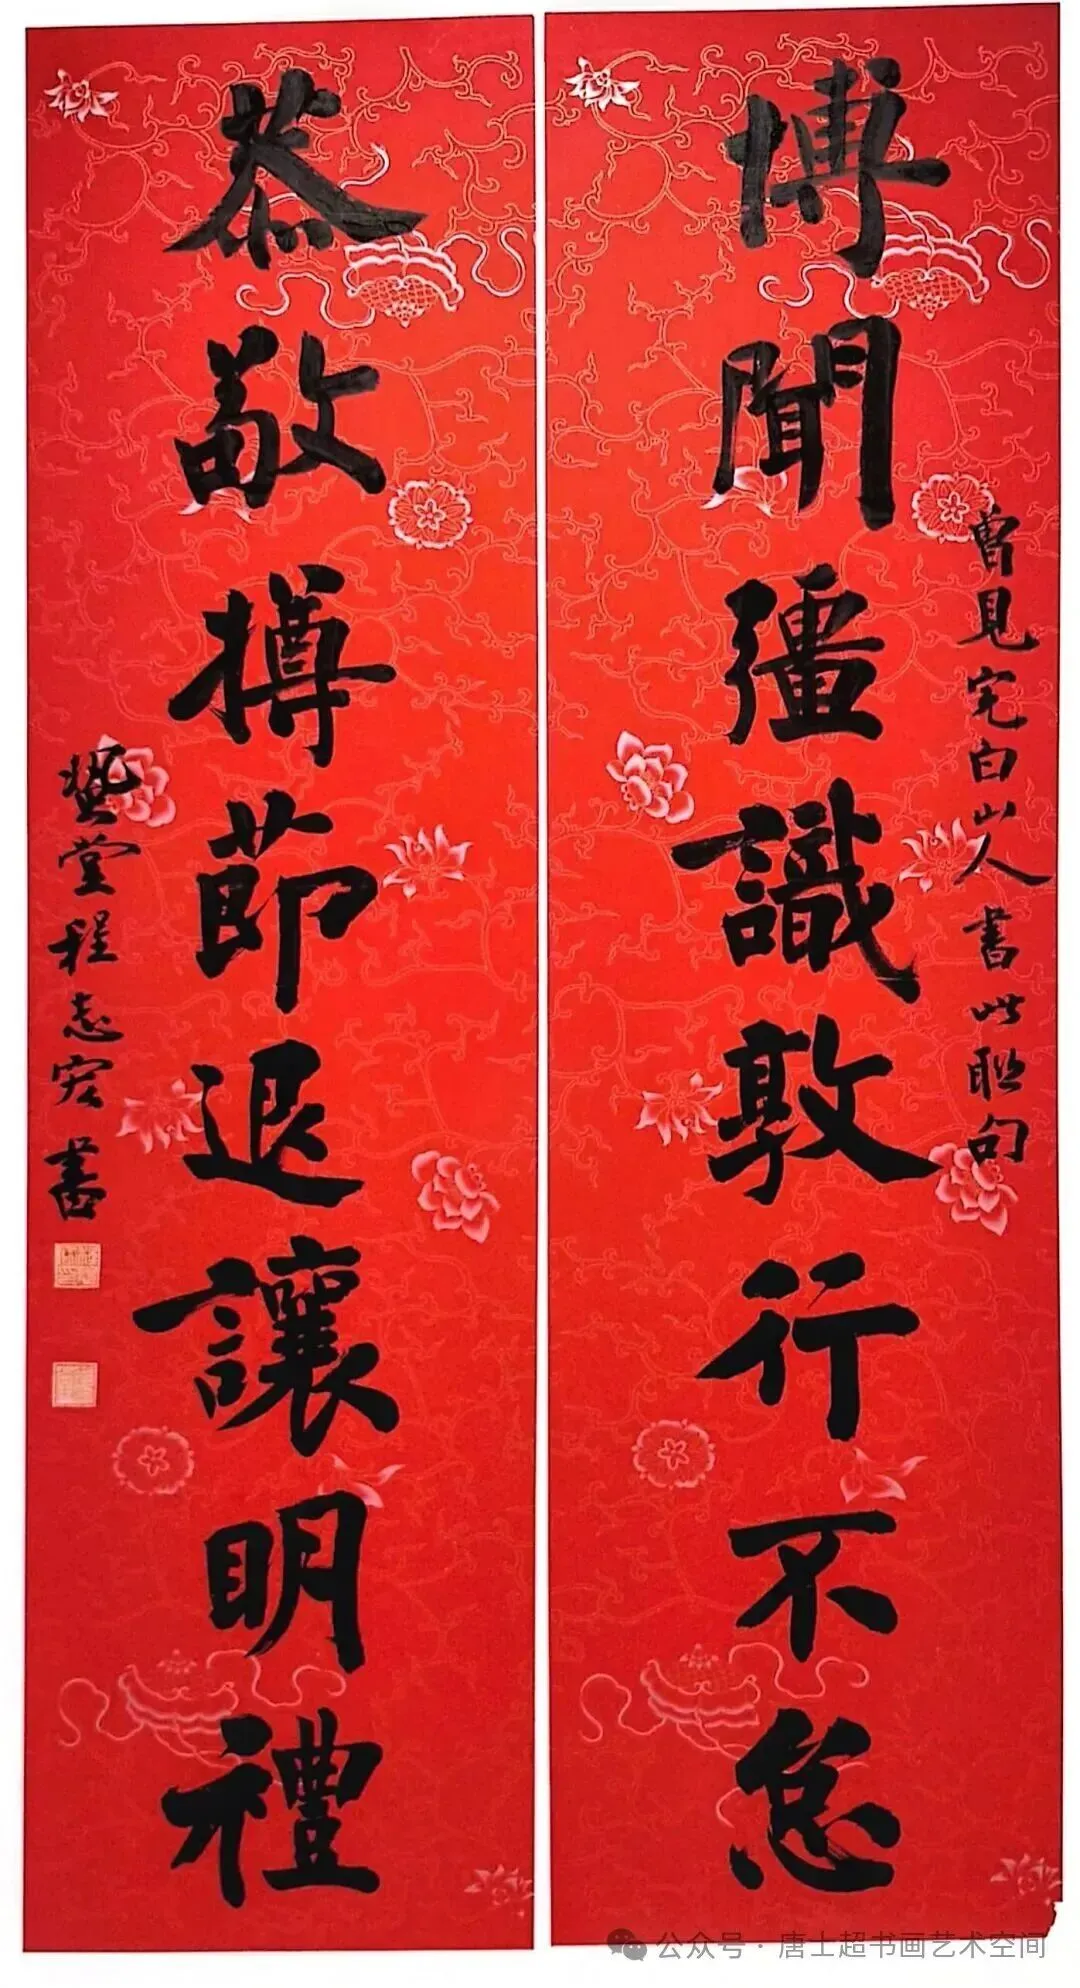 博聞彊識敦行不怠
曾見完白山人書此聯句
恭敬撙莭退讓明禮
堂程志宏書
公众号·唐士超书画艺术空间